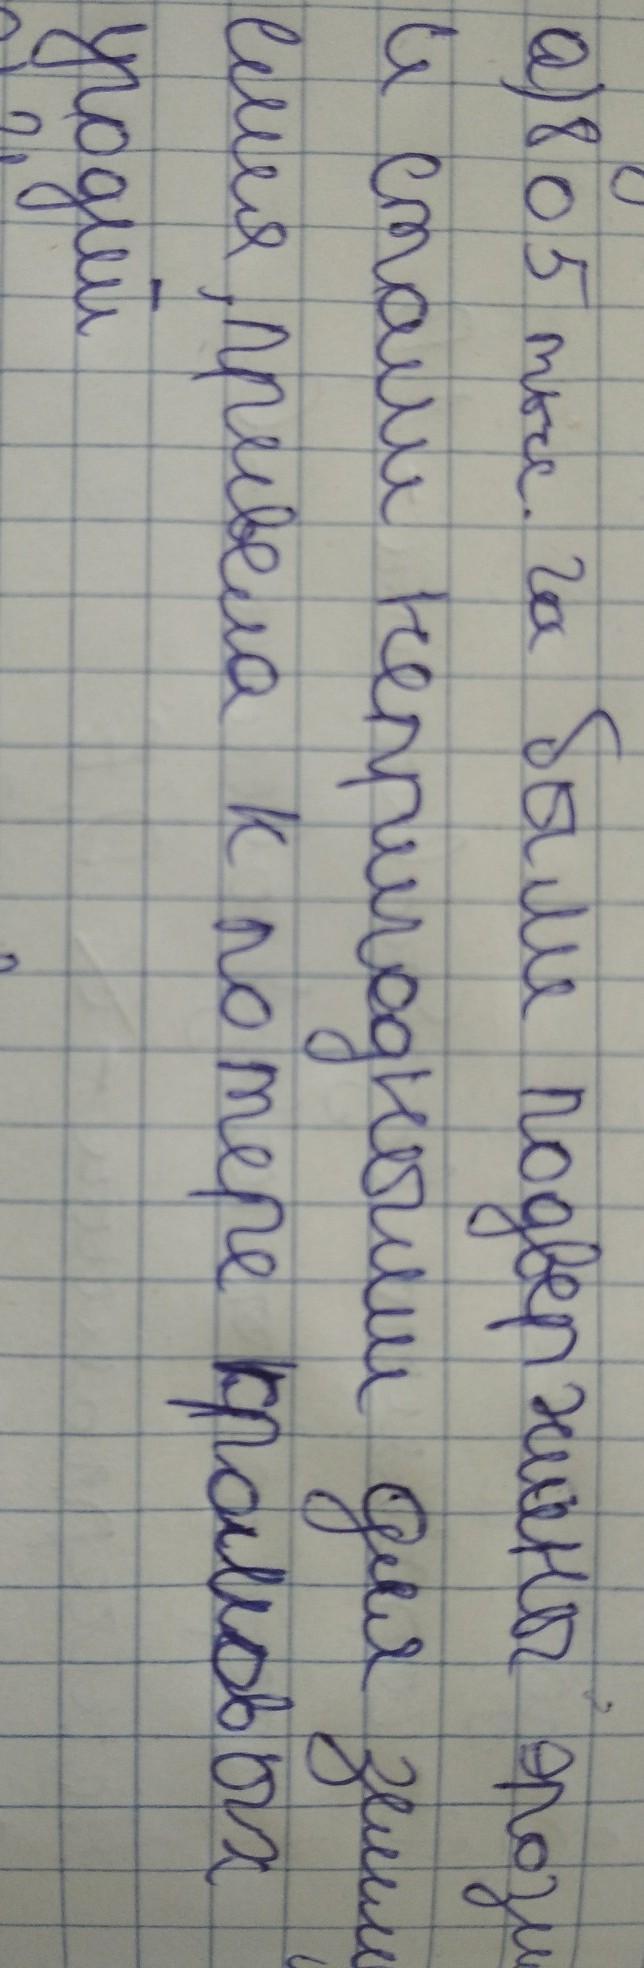 а) 805 тыс. га были подвержены эрози
и стали непригодными для земле
делия, привела к потере краловых
угодий